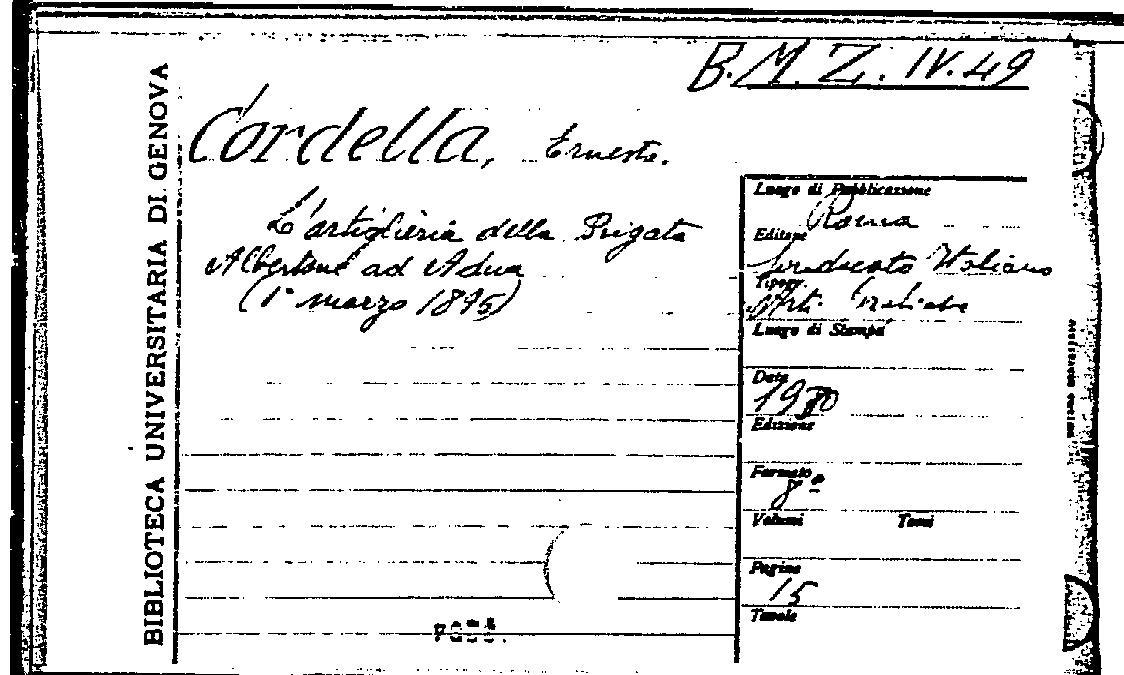 B.M.Z. IV. 49
BIBLIOTECA UNIVERSITARIA DI GENOVA
Cordella, Ernesto.
L'artiglieria della Brigata
Albertone ad Adua
(1° marzo 1895)
Luogo di Pubblicazione
Roma
Editore
Sindacato Italiano
Tipogr.
Arti
Luogo di Stampa
Data
1930
Edizione
Formato
8º
Volumi Tomi
Pagine
15
Tavole